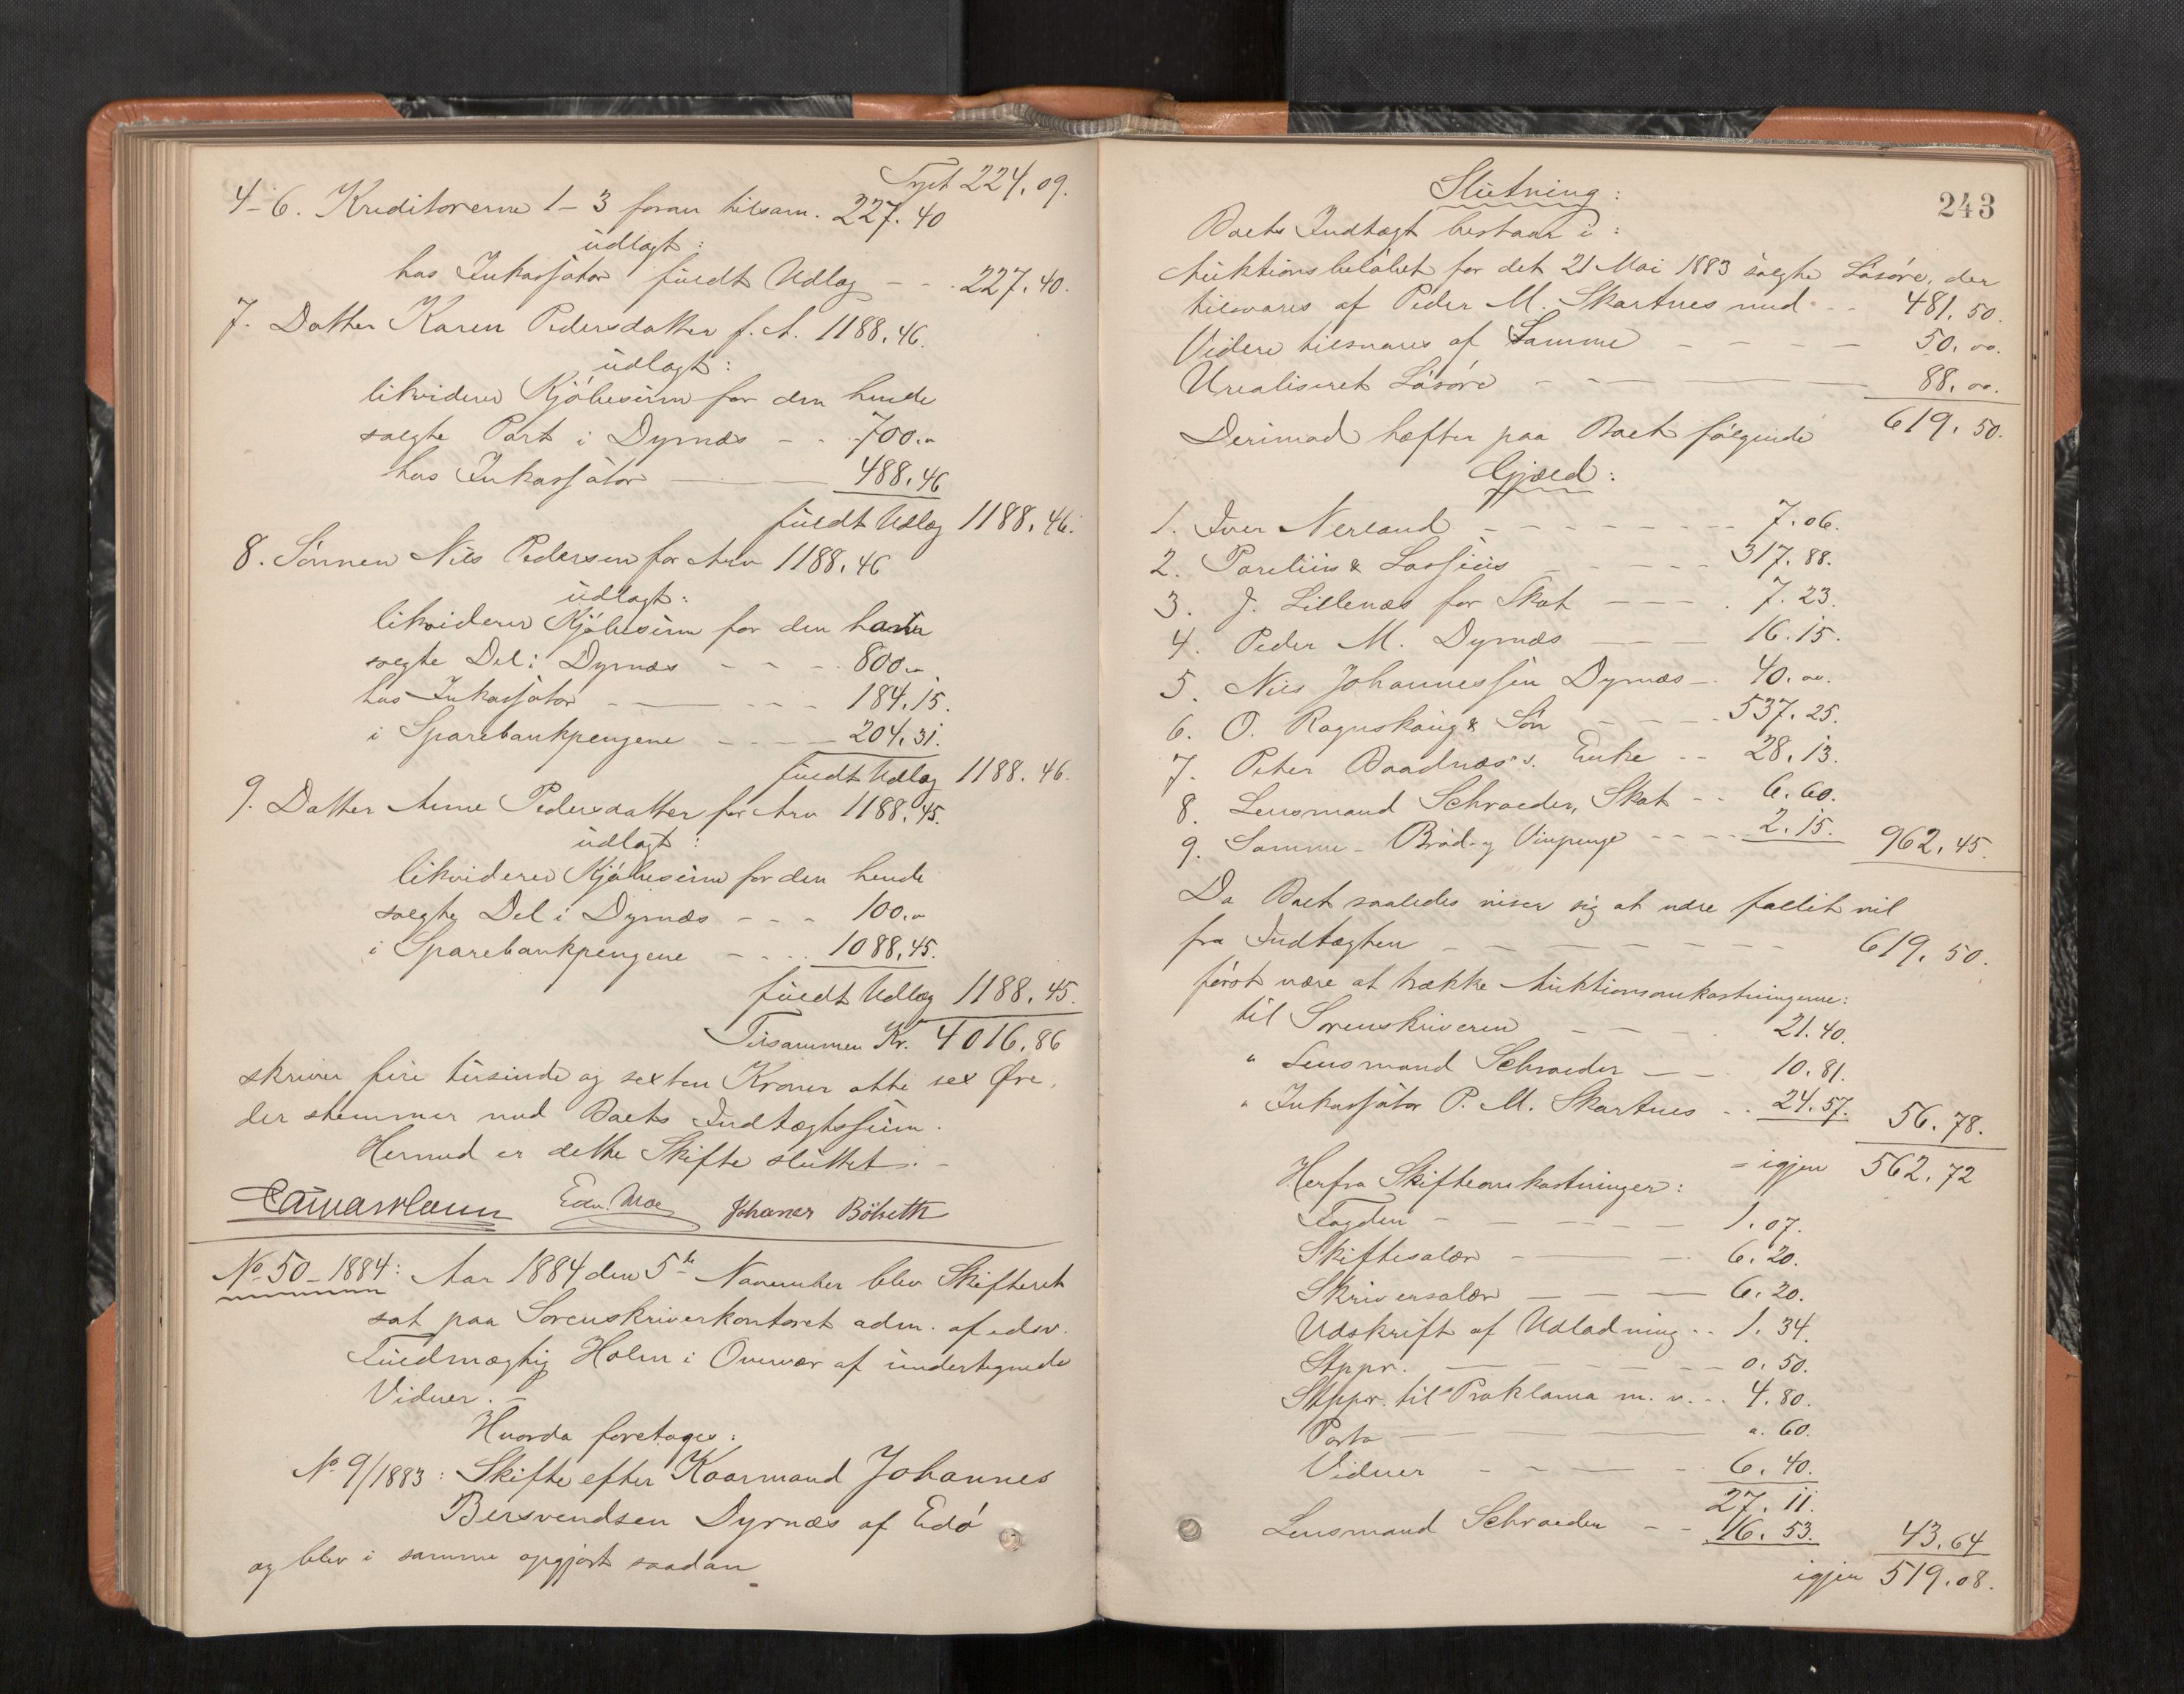 Trpt 224.09.
4-6. Kreditorerne 1-3 foran tilsam. 227.40
udlagt:
hos Inkassator fuldt Udlæg - - 227.40.
7. Datter Karen Pedersdatter f. A. 1188.46.
udlagt:
likviderer Kjöbesum for den hende
solgte Part i Dyrnæs - - 700.„
hos Inkassator — 488.46
fuldt Udlæg 1188.46.
8. Sønnen Nils Pedersen for Arv 1188.46
udlagt:
likviderer Kjöbesum for den ham
solgte Del i Dyrnæs - - - 800.„
hos Inkassator - — - - - 184.15.
i Sparebankpengene - - - - 204.31.
fuldt Udlæg 1188.46.
9. Datter Anne Pedersdatter for Arv 1188.45.
udlagt:
likviderer Kjöbesum for den hende
solgte Del i Dyrnæs - - - 100.„
i Sparebankpengene - - - . 1088.45.
fuldt Udlæg 1188.45.
Tilsammen Kr. 4016.86
skriver fire tusinde og sexten Kroner otti sex Øre,
der stemmer med Boets Indtægtssum.
Hermed er dette Skifte sluttet. -
Edv. Moe Johannes Bölseth
No 50-1884: Aar 1884 den 5te November blev Skifteret
sat paa Sorenskriverkontoret adm. af edsv.
Fuldmægtig Holm i Overvær af undertegnede
Vidner. -
Hvorda foretages:
No 9/1883: Skifte efter Kaarmand Johannes
Bersvendsen Dyrnæs af Edö
og blev i samme opgjort saadan
243
Slutning:
Boets Indtægt bestaar i:
Auktionsbelöbet for det 21 Mai 1883 solgte Lösöre, der
tilsvares af Peder M. Skartnes med - - 481.50.
Videre tilsvares af Samme - - - - 50.oo.
Urealiseret Lösöre - - — 88.oo.
619.50.
Derimod hæfter paa Boet fölgende
Gjæld:
1. Iver Nerland - - - - - - - 7.06.
2. Parelius & Lossius - - - - - 317.88.
3. J. Lillenæs for Skat - - - . 7.23.
4. Peder M. Dyrnæs — - 16.15.
5. Nils Johannessen Dyrnæs - . 40.oo.
6. O. Ragnskaug & Sön - - - . 537.25.
7. Peter Baadnæs's. Enke - - 28.13.
8. Lensmand Schroeder, Skat - - 6.60.
9. Samme - Bröd- og Vinpenge - - - - 2.15. 962.45.
Da Boet saaledes viser sig at være fallit vil
fra Indtægten - - - - - - - 619.50.
först være at trække Auktionsomkostningerne:
til Sorenskriveren - - - . 21.40.
" Lensmand Schroeder - - . 10.81.
" Inkassator P. M. Skartnes . . 24.57. 56.78.
= igjen 562.72
Herfra Skifteomkostninger:
Fogden - - - - - - 1.07.
Skiftesalær - — - 6.20.
Skriversalær - - - — 6.20.
Udskrift af Udlodning . . 1.34.
Stppr. — - - - - 0.50.
Stppr. til Proklama m. v. . . 4.80.
Porto - — o.60.
Vidner - - — - 6.40.
27.11.
Lensmand Schroeder - - 16.53. 43.64
igjen 519.08.